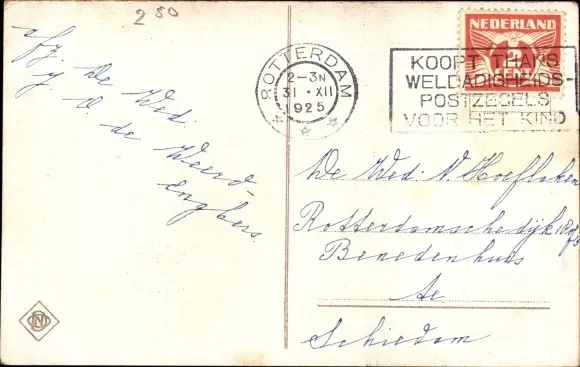 2 50
afz. De Wed.
J. v. de Weerd-
Engbers.
ROTTERDAM
2-3N
31 · XII
1925
NEDERLAND
2
CENT
KOOPT THANS
WELDADIGHEIDS-
POSTZEGELS
VOOR HET KIND
De Wed. N Hoeflaken
Rotterdamschedijk
Benedenhuis
te
Schiedam